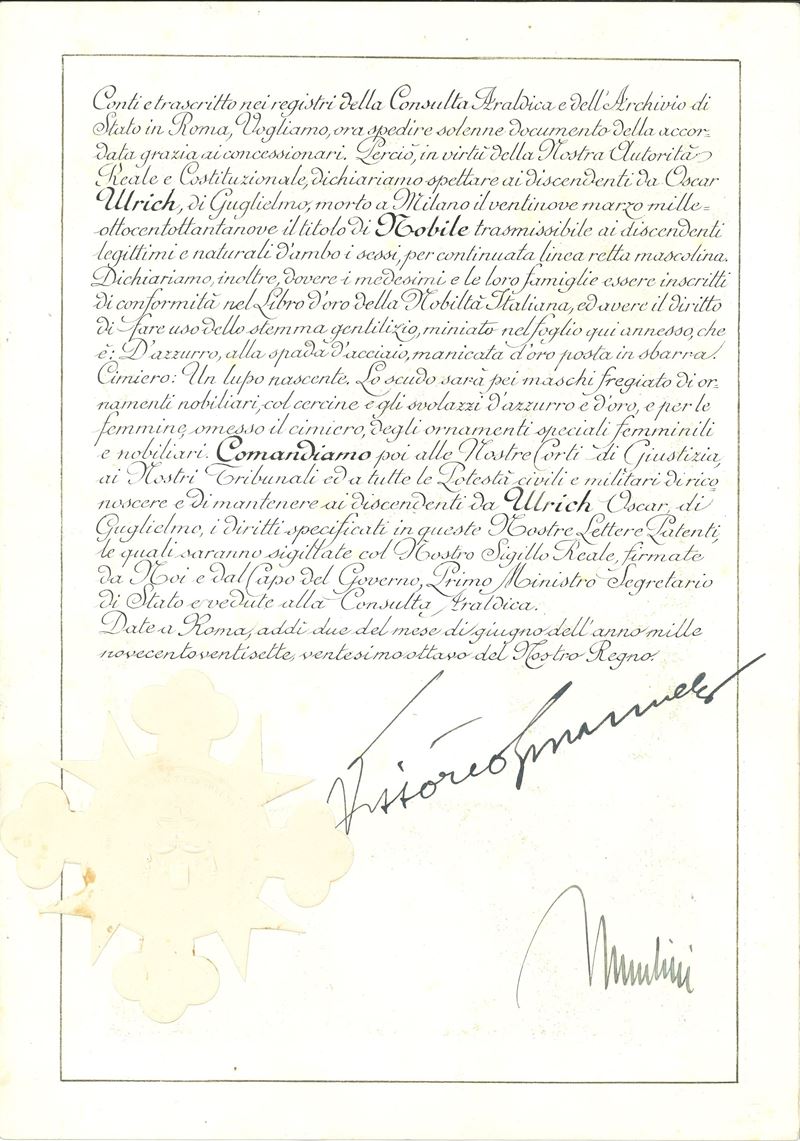 Conti e trascritto nei registri della Consulta Araldica e dell'Archivio di
Stato in Roma, Vogliamo, ora spedire solenne documento della accor-
data grazia ai concessionari. Perciò, in virtù della Nostra Autorità
Reale e Costituzionale, dichiariamo spettare ai discendenti da Oscar
Ulrich, di Guglielmo, morto a Milano il ventinove marzo mille=
ottocentottantanove il titolo di Nobile trasmissibile ai discendenti
legittimi e naturali d'ambo i sessi, per continuata linea retta mascolina.
Dichiariamo, inoltre, dovere i medesimi e le loro famiglie essere inscritti
di conformità nel Libro d'oro della Nobiltà Italiana, ed avere il diritto
di fare uso dello stemma gentilizio, miniato nel foglio qui annesso, che
è: D'azzurro, alla spada d'acciaio, manicata d'oro posta in sbarra.
Cimiero: Un lupo nascente. Lo scudo sarà pei maschi fregiato di or-
namenti nobiliari, col cercine e gli svolazzi d'azzurro e d'oro, e per le
femmine, omesso il cimiero, degli ornamenti speciali femminili
e nobiliari. Comandiamo poi alle Nostre Corti di Giustizia,
ai Nostri Tribunali ed a tutte le Potestà civili e militari di rico
noscere e di mantenere ai discendenti da Ulrich Oscar, di
Guglielmo, i diritti specificati in queste Nostre Lettere Patenti,
le quali saranno sigillate col Nostro Sigillo Reale, firmate
da Noi e dal Capo del Governo, Primo Ministro Segretario
di Stato e vedute alla Consulta Araldica.
Date a Roma, addì due del mese di giugno dell'anno mille
novecentoventisette, ventesimo ottavo del Nostro Regno.
Vittorio Emanuele
Mussolini